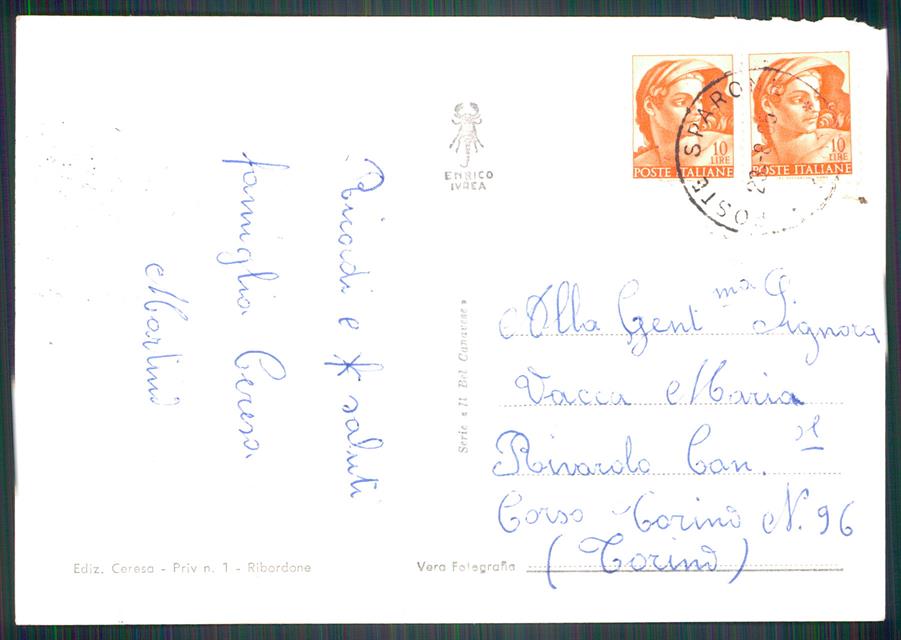 Ricordi e saluti
famiglia Ceresa
Martino
ENRICO
IVREA
Serie « Il Bel Canavese »
10
LIRE
POSTE ITALIANE
10
LIRE
POSTE ITALIANE
POSTE SPARONE
28-8
Alla Gent ma Signora
Vacca Maria
Rivarolo Can. se
Corso Torino N. 96
(Torino)
Ediz. Ceresa - Priv n. 1 - Ribordone
Vera Fotografia